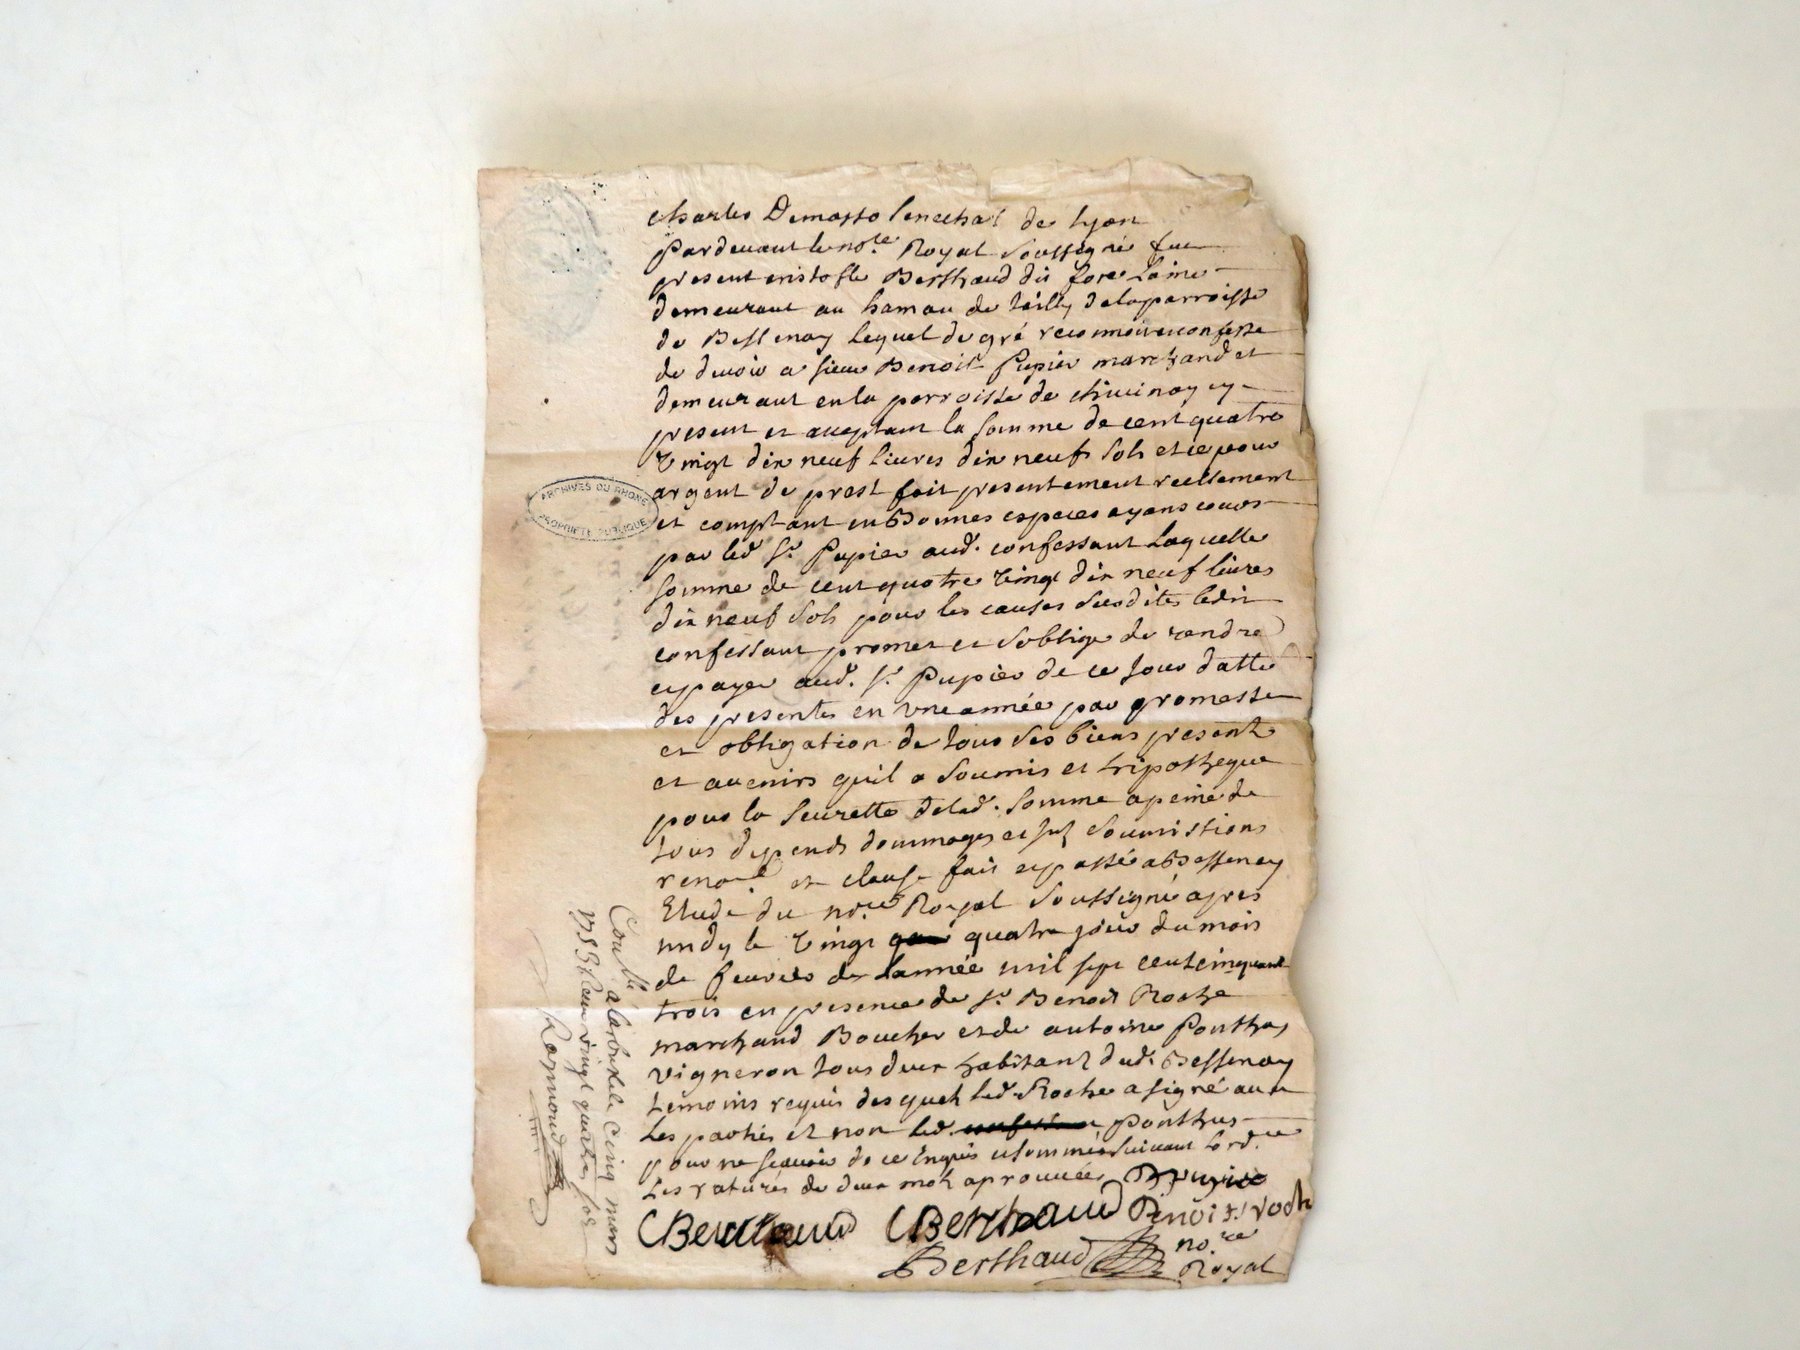 Charles Demasso senechal de lyon
Pardevant le no.re Royal soussigné fut
present cristofle Berthaud dit fore Laine
demeurant au hamau de la paroisse
de Bessenay lequel de gré reconnoit et confesse
de devoir a sieur Benoit Pupier marchand et
demeurant en la parroisse de chivinay cy
present et acceptant la somme de cent quatre
vingt dix neuf livres dix neuf sols et ce pour
argent de prest fait presentement reellement
et comptant en Bonnes especes ayans cours
par led. Sr. Pupier aud. confessant Laquelle
somme de cent quatre vingt dix neuf livres
dix neuf sols pour les causes susdites ledit
confessant promet et soblige de rendre
et payer aud. Sr. Pupier de ce jour datte
des presentes en une année par promesse
et obligation de tous ses biens presents
et avenirs quil a soumis et hipotheque
pour la seurette de lad. somme a peine de
tous depends dommages et soumissions
renon. et clause fait et passé a Bessenay
Etude du no.re Royal soussigné apres
midy le vingt quatre jour du mois
de fevrier de lannée mil sept cent cinquante
trois en presence de Sr. Benoit Roche
marchand Boucher et de antoine Ponthus
vigneron tous deux habitants dud. Bessenay
temoins requis desquels led. Roche a signé avec
Les parties et non led. Ponthus
pour ne scavoir de ce enquis et sommé suivant lord.ce
Les ratures de deux mots aprouvées Pupier
CBerthaud CBerthaud Benoist roch
Berthaud no.re
Royal
ARCHIVES DU RHONE
PROPRIETE PUBLIQUE
Con.lle a larbresle le cinq mars
1753 Reçu vingt quatre sols
Raymond